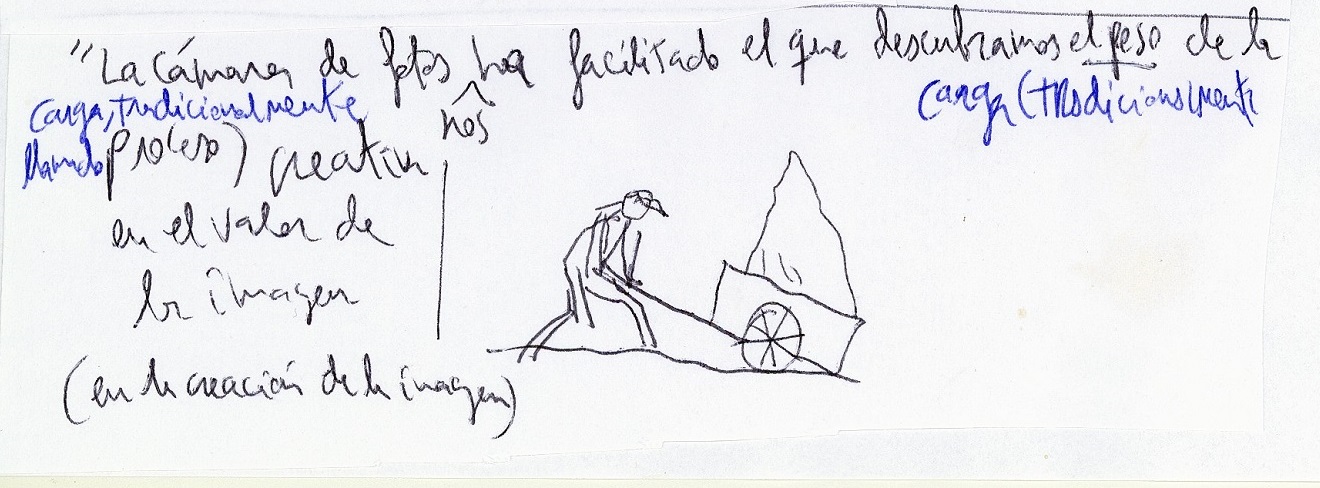 "La cámara de fotos ha facilitado el que descubramos el peso de la
nos
carga, tradicionalmente carga (tradicionalmente
llamado proceso) creativa
en el valor de
la imagen
(en la creación de la imagen)